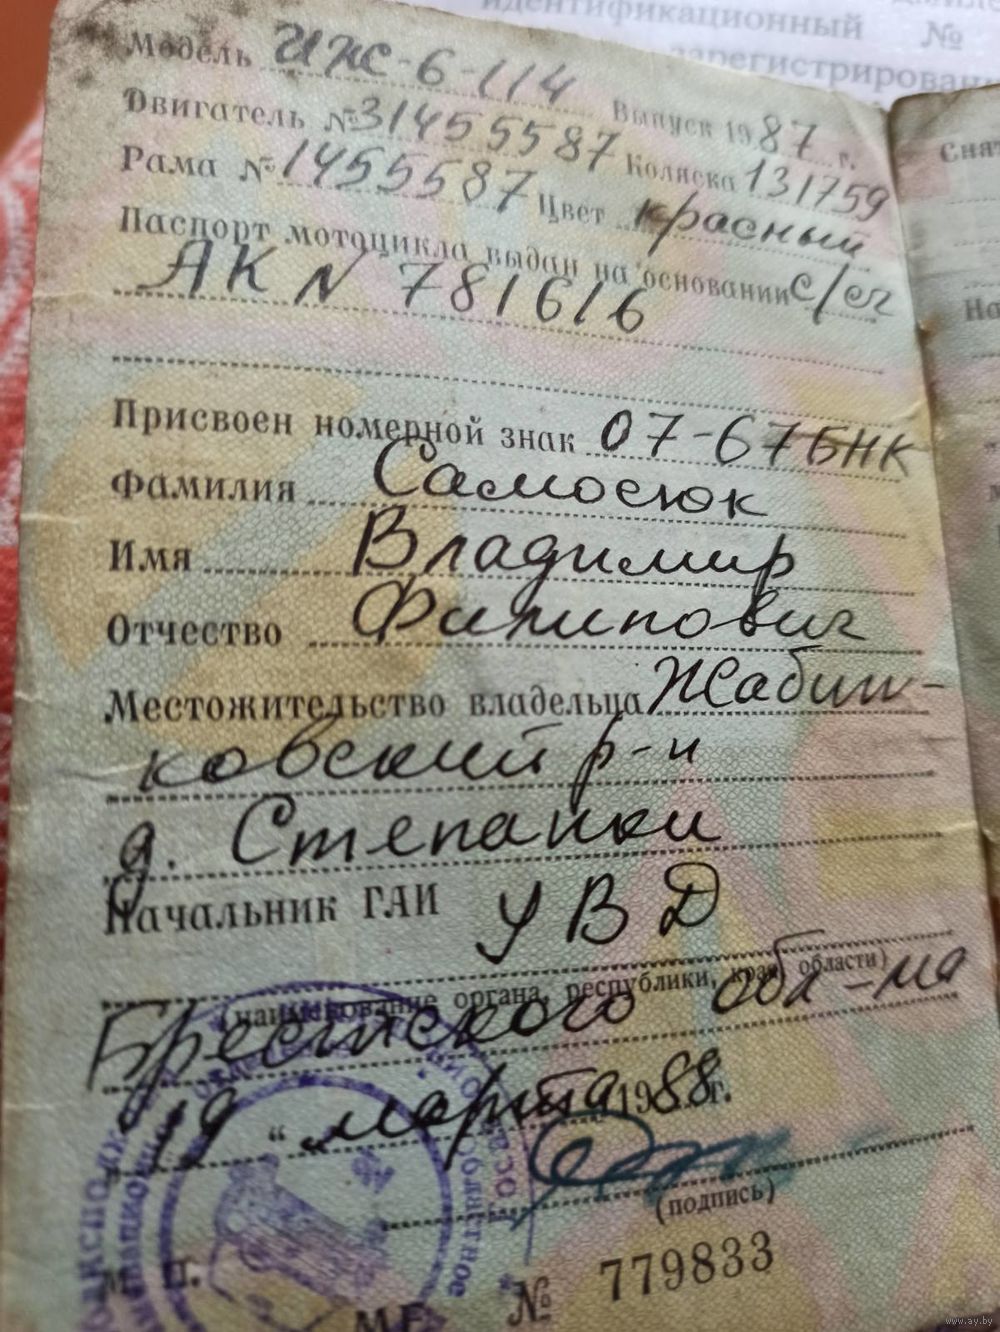 идентификационный №
зарегистрирован
Модель ИЖ-6-114 Выпуск 1987 г.
Двигатель №31455587 Коляска 131759
Рама №1455587 Цвет красный
Паспорт мотоцикла выдан на основании с/сч
АК N 781616
Присвоен номерной знак 07-67 БНК
Фамилия Самосюк
Имя Владимир
Отчество Филипович
Местожительство владельца Жабин-
ковский р-н
д. Степанки
Начальник ГАИ УВД
(наименование органа, республики, края, области)
Брестского обл-ма
19 " марта 1988 г.
(подпись)
М. П.
№ 779833
www.ay.by